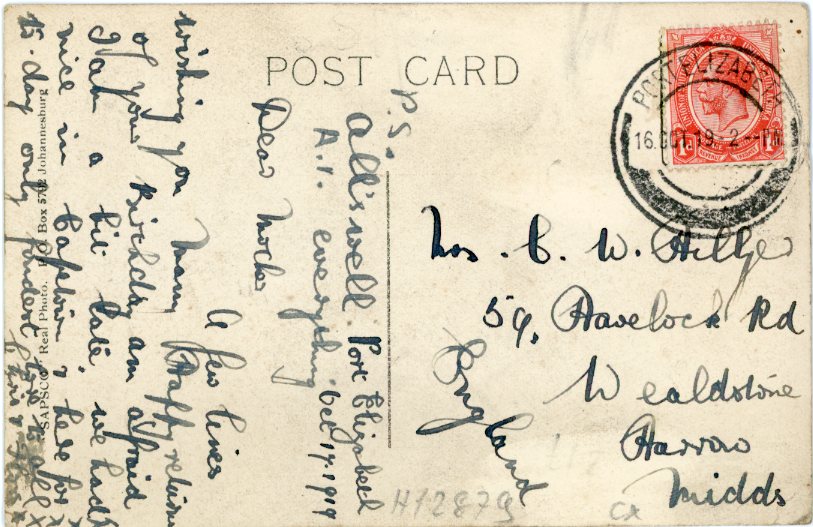 POST CARD
PORT ELIZABETH
16.OCT.19-2-PM
Mrs. C. W. Hillyer
59, Havelock Rd
Wealdstone
Harrow
Midds
England
P.S.
All's well.
A.1. everything
Port Elizabeth
Oct 17. 1919
Dear Mother
A few lines
wishing you many Happy returns
of your Birthday am afraid
I am a bit late we had
nice in Capetown & here for
to-day only fondest love to all
Chris
"SAPSCO" Real Photo. P.O. Box 5792 Johannesburg
H12879
CX